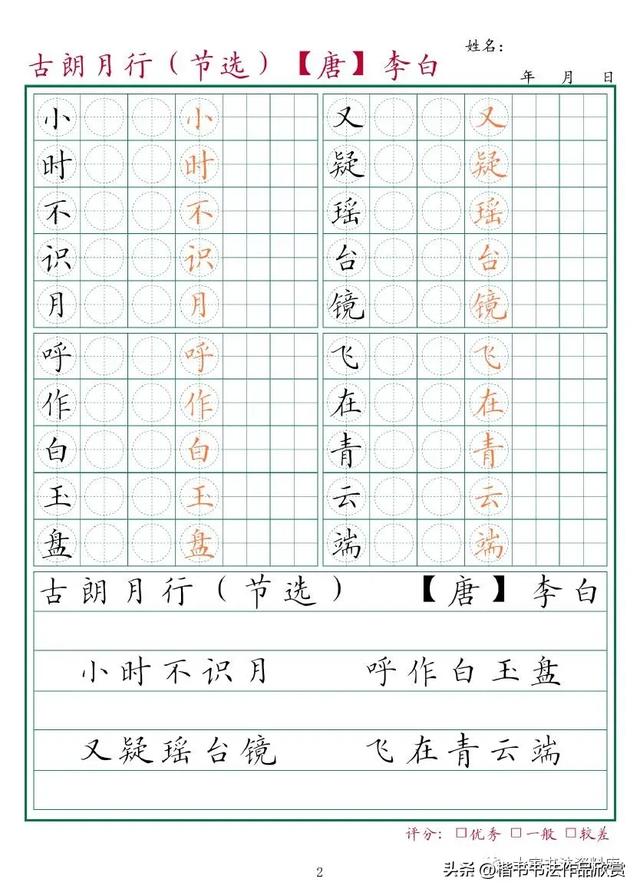 姓名：
古朗月行（节选）【唐】李白
年 月 日
小 小 又 又
时 时 疑 疑
不 不 瑶 瑶
识 识 台 台
月 月 镜 镜
呼 呼 飞 飞
作 作 在 在
白 白 青 青
玉 玉 云 云
盘 盘 端 端
古朗月行（节选） 【唐】李白
小时不识月 呼作白玉盘
又疑瑶台镜 飞在青云端
评分：□优秀 □一般 □较差
2
头条@楷书书法作品欣赏